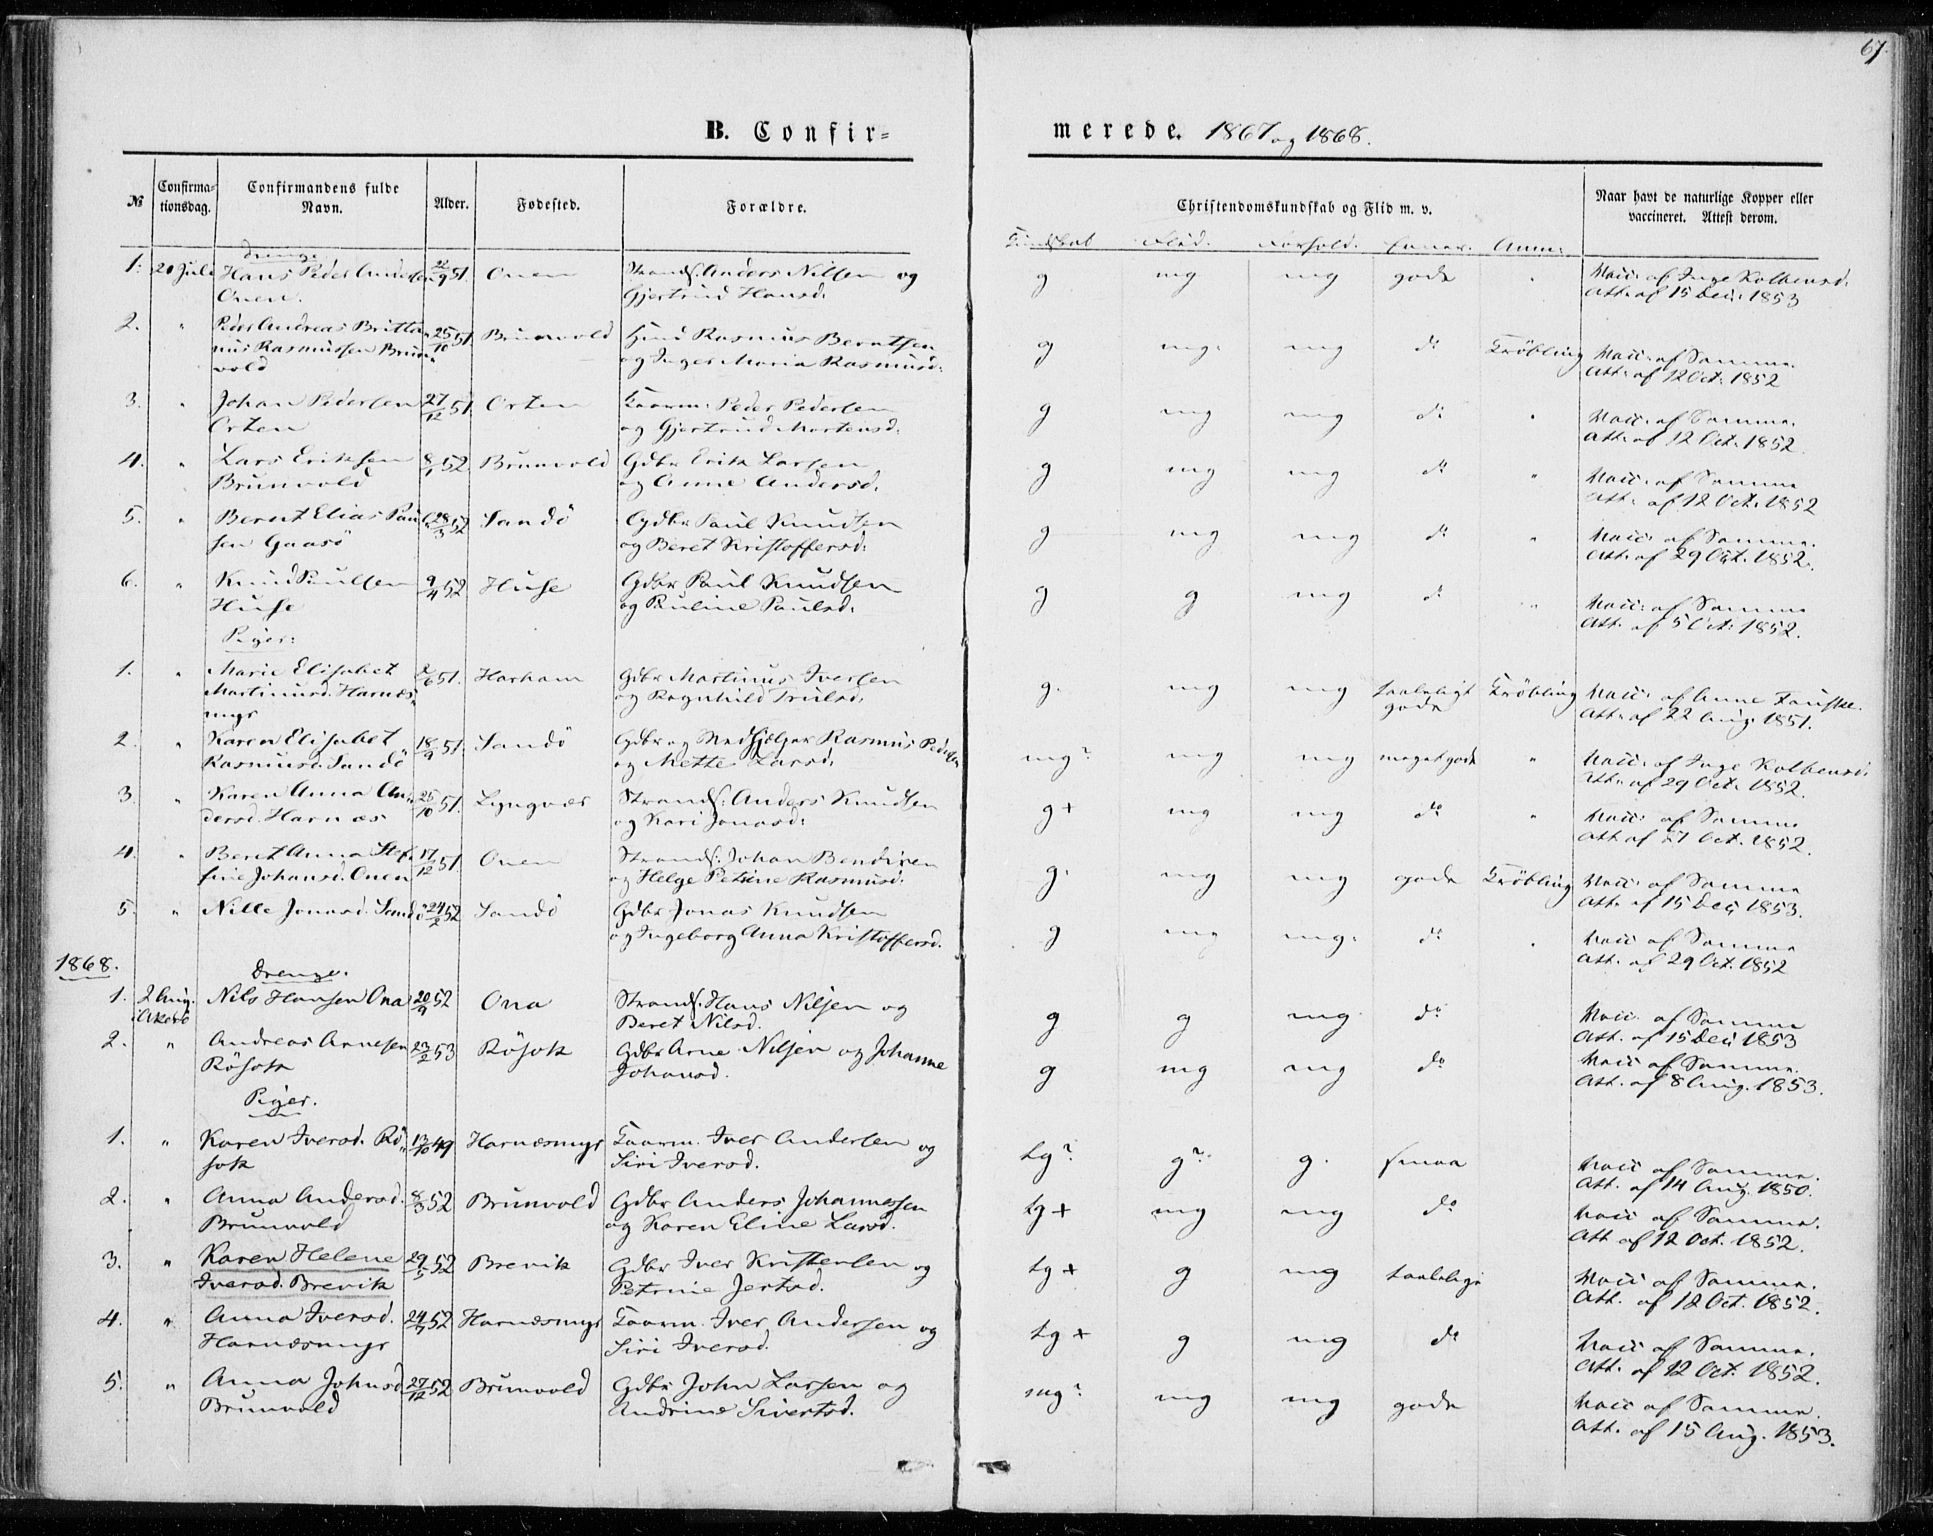 67.
B. Confir=
merede. 1867 og 1868.
№
Confirma-
tionsdag.
Confirmandens fulde
Navn.
Alder.
Fødested.
Forældre.
Christendomskundskab og Flid m. v.
Naar havt de naturlige Kopper eller
vaccineret. Attest derom.
Kundskab Flid. Forhold. Evner. Anm:
Drenge
1. 20 Juli Hans Peder Andersen 9 51. Onen Strands. Anders Nilsen og g mg mg gode " Vacc. af Inge Kolbensd.
Onen. Gjertrud Hansd. Att. af 15 Dec. 1853
2. " Peder Andreas Britta- 25/10 51. Brunvold Rasmus Berntsen g mg. mg do Frøbling Vacc. af Samme.
nus Rasmussen Brun- og Inger Maria Rasmusd. Att. af 12 Oct. 1852
vold
3. " Johan Pedersen 27/12 51. Orten Faarm. Peder Pedersen g mg mg do " Vacc. af Samme.
Orten og Gjertrud Mortensd. Att. af 12 Oct. 1852.
4. " Lars Eriksen 8/1 52. Brunvold Gdbr Erik Larsen g mg mg do " Vacc. af Samme
Brunvold og Anne Andersd. Att. af 12 Oct. 1852
5. " Bernt Elias Paul- 28/3 52 Sandö Gdbr Paul Knudsen g mg mg do " Vacc. af Samme.
sen Gaasö og Beret Kristoffersd. Att. af 29 Oct. 1852.
6. " Knud Paulsen 9/4 52 Huse Gdbr Paul Knudsen g g mg do " Vacc. af Samme
Huse og Pauline Paulsd. Att. af 5 Oct. 1852.
Piger:
1. " Marie Elisabet 2/6 51. Harham Gdbr Martinus Iversen g. mg mg taaleligt Frøbling Vacc. af Anne Fauske.
Martinusd. Harnæs- og Ragnhild Trulsd. gode Att. af 22 Aug. 1851.
myr
2. " Karen Elisabet 18/9 51. Sandö Gdbr og Medhjelper Rasmus Pedersen mg? mg mg megetgode " Vacc. af Inge Kolbensd.
Rasmusd. Sandö og Mette Larsd. Att. af 29 Oct. 1852.
3. " Karen Anna An- 25/10 51. Lyngvær Strands. Anders Knudsen g+ mg mg do " Vacc. af Samme
dersd. Harnæs og Kari Jonasd. Att af 27 Oct. 1852.
4. " Beret Anna Stef- 17/12 51 Onen Strands. Johan Bendixen g. mg mg gode Frøbling Vacc. af Samme
fine Johansd. Onen og Helge Petrine Rasmusd. Att. af 15 Dec. 1853.
5. " Nille Jonasd. Sandö 24/2 52 Sandö Gdbr Jonas Knudsen g mg mg. do . Vacc af Samme
og Ingeborg Anna Kristoffersd. Att. af 29 Oct. 1852
1868.
Drenge.
1. 2 Aug. Nils Hansen Ona 20/9 52 Ona Strands. Hans Nilsen og g g mg do Vacc. af Samme
i Akerö Beret Nilsd. Att. af 15 Dec. 1853
2. " Andreas Arnesen 23/2 53 Rösok Gdbr Arne Nilsen og Johanne g mg mg do Vacc af Samme.
Rösok Johansd. Att. af 8 Aug. 1853.
Piger.
1. " Karen Iversd. Rö- 13/10 49 Harnæsmyr Faarm. Iver Andersen og tg? g? g. smaa Vacc af Samme.
sok Siri Iversd. Att. af 14 Aug. 1850.
2. " Anna Andersd. 8/3 52 Brunvold Gdbr Anders Johannessen tg+ mg mg do Vacc af Samme.
Brunvold og Karen Eline Larsd. Att af 12 Oct. 1852.
3. " Karen Helene 29/5 52 Brevik Gdbr Iver Kristensen og tg+ g mg taalelige Vacc af Samme.
Iversd. Brevik Petrine Jertsd. Att. af 12 Oct. 1852.
4. " Anna Iversd. 24/7 52 Harnæsmyr Faarm. Iver Andersen og tg+ g mg do Vacc af Samme.
Harnæsmyr Siri Iversd. Att. af 12 Oct. 1852.
5. " Anna Johnsd 27/12 52 Brunvold Gdbr John Larsen og mg? mg mg gode Vacc af Samme.
Brunvold Andrine Sivertsd. Att. af 15 Aug. 1853.